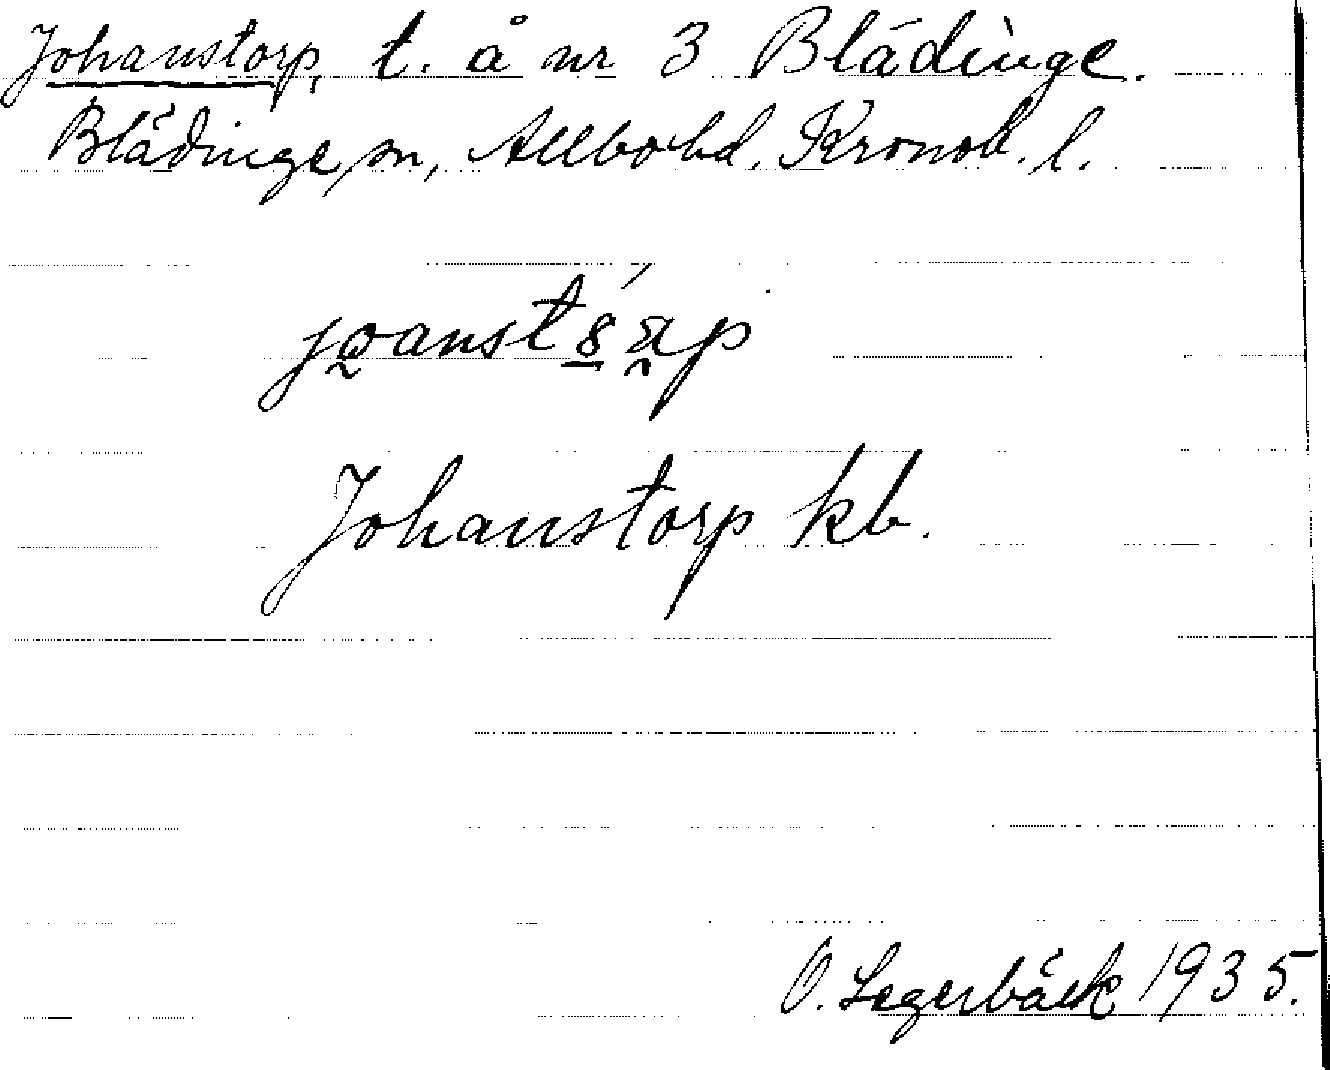 Johanstorp, t. å nr 3 Blädinge.
Blädinge sn, Allbo hd. Kronob. l.
Johanstorp kb.
O. Legerbäck 1935.